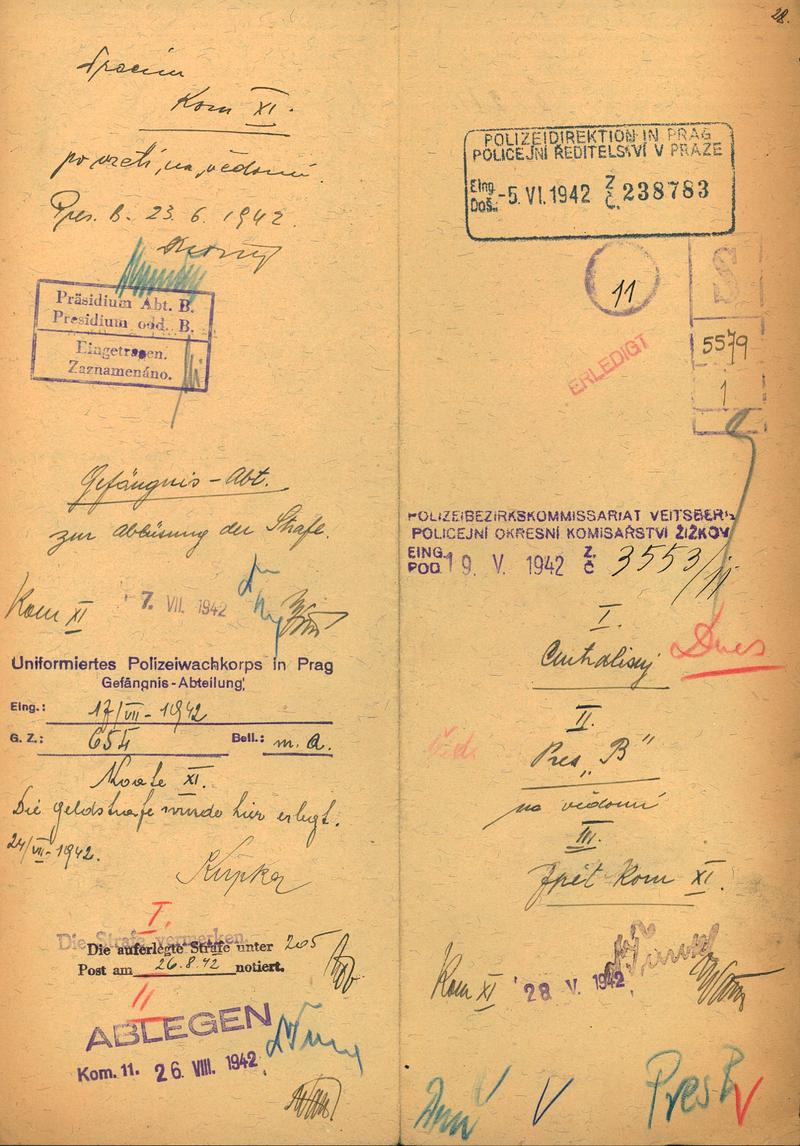 28.
Vracím
Kom XI.
po vzetí na vědomí.
Pres. B. 23. 6. 1942.
Präsidium Abt. B.
Presidium odd. B.
Eingetragen.
Zaznamenáno.
Gefängnis-Abt.
zur Ablösung der Strafe.
Kom XI 7. VII. 1942
Uniformiertes Polizeiwachkorps in Prag
Gefängnis-Abteilung
Eing.: 17/VII-1942
G. Z.: 654 Beil.: m. a.
XI.
Die Geldstrafe wurde hier erlegt.
24/VII-1942.
I.
Die Strafe vermerken.
Die auferlegte Strafe unter 205
Post am 26.8.42 notiert.
II
ABLEGEN
Kom. 11. 26. VIII. 1942
POLIZEIDIREKTION IN PRAG
POLICEJNÍ ŘEDITELSTVÍ V PRAZE
Eing. Doš.: -5. VI. 1942 Z Č. 238783
11
S
5579
1
ERLEDIGT
POLIZEIBEZIRKSKOMMISSARIAT VEITSBERG
POLICEJNÍ OKRESNÍ KOMISAŘSTVÍ ŽIŽKOV
EING. POD. 19. V. 1942 Z. Č 3553/11
I.
Dnes
II.
Pres „B"
na vědomí
III.
Zpět Kom XI.
Kom XI 28 V. 1942
Pres B